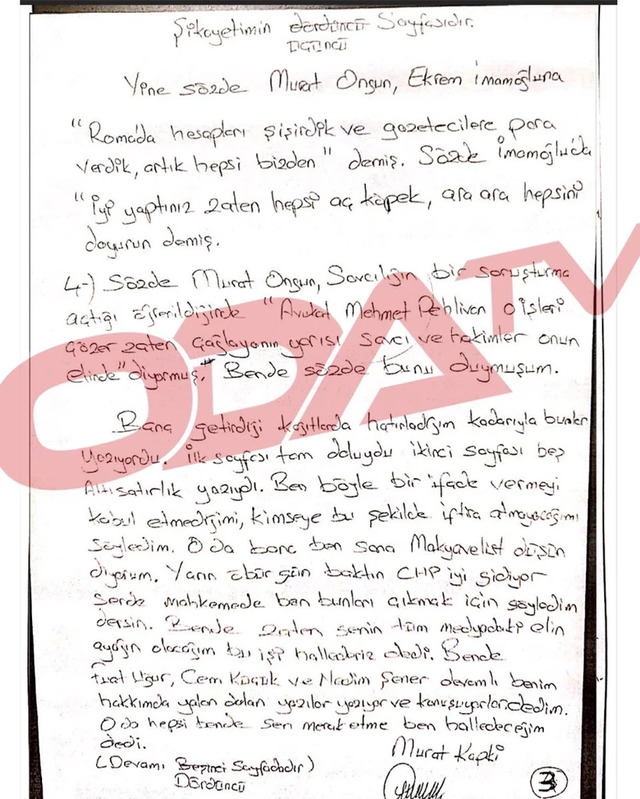 Şikayetimin dördüncü Sayfasıdır.
ÜÇÜNCÜ
Yine sözde Murat Ongun, Ekrem İmamoğluna
"Roma'da hesapları şişirdik ve gazetecilere para
verdik, artık hepsi bizden" demiş. Sözde İmamoğlu'da
"İyi yaptınız zaten hepsi aç köpek, ara ara hepsini
doyurun demiş.
4-) Sözde Murat Ongun, Savcılığın bir soruşturma
açtığı öğrenildiğinde "Avukat Mehmet Pehlivan o işleri
çözer zaten, Çağlayanın yarısı savcı ve hakimler onun
elinde" diyormuş. Bende sözde bunu duymuşum.
Bana getirdiği kağıtlarda hatırladığım kadarıyla bunlar
yazıyordu. İlk sayfası tam doluydu ikinci sayfası beş
Altı satırlık yazıydı. Ben böyle bir ifade vermeyi
kabul etmediğimi, kimseye bu şekilde iftira atmayacağımı
söyledim. O da bana ben sana Makyavelist düşün
diyorum. Yarın öbür gün baktın CHP iyi gidiyor
sende mahkemede ben bunları çıkmak için söyledim
dersin. Bende zaten senin tüm medyadaki elin
ayağın olacağım bu işi hallederiz dedi. Bende
Fuat Uğur, Cem Küçük ve Nedim Şener devamlı benim
hakkımda yalan dolan yazılar yazıyor ve konuşuyorlar dedim.
O da hepsi bende sen merak etme ben halledeceğim
dedi.
Murat Kapki
(Devamı Beşinci Sayfadadır)
Dördüncü
3
ODA TV